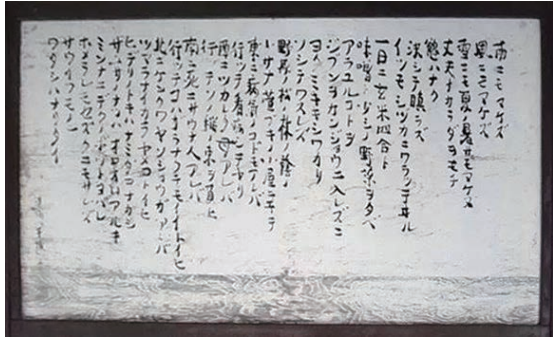 雨ニモマケズ
風ニモマケズ
雪ニモ夏ノ暑サニモマケヌ
丈夫ナカラダヲモチ
慾ハナク
決シテ瞋ラズ
イツモシヅカニワラッテヰル
一日ニ玄米四合ト
味噌ト少シノ野菜ヲタベ
アラユルコトヲ
ジブンヲカンジョウニ入レズニ
ヨクミキキシワカリ
ソシテワスレズ
野原ノ松ノ林ノ蔭ノ
小サナ萱ブキノ小屋ニヰテ
東ニ病気ノコドモアレバ
行ッテ看病シテヤリ
西ニツカレタ母アレバ
行ッテソノ稲ノ束ヲ負ヒ
南ニ死ニサウナ人アレバ
行ッテコハガラナクテモイイトイヒ
北ニケンクヮヤソショウガアレバ
ツマラナイカラヤメロトイヒ
ヒデリノトキハナミダヲナガシ
サムサノナツハオロオロアルキ
ミンナニデクノボートヨバレ
ホメラレモセズクニモサレズ
サウイフモノニ
ワタシハナリタイ